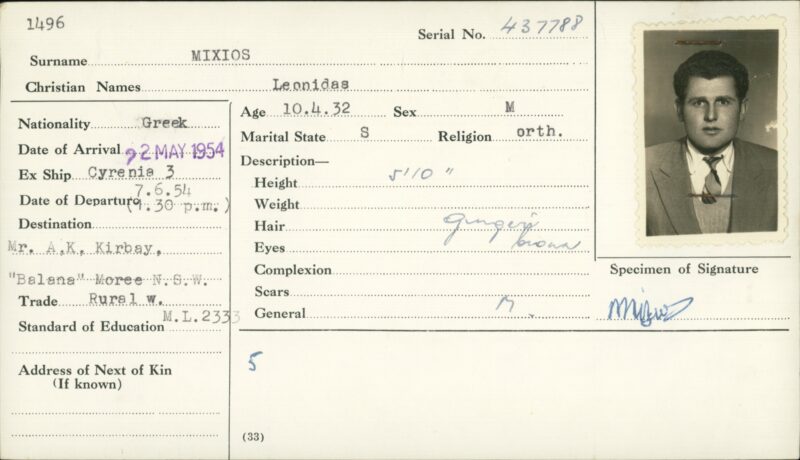 1496
Serial No. 437788
Surname MIXIOS
Christian Names Leonidas
Nationality Greek
Date of Arrival 22 MAY 1954
Ex Ship Cyrenia 3
Date of Departure 7.6.54
(1.30 p.m.)
Destination
Mr. A.K. Kirbay,
"Balana" Moree N.S.W.
Trade Rural w.
M.L.2333
Standard of Education
Address of Next of Kin
(If known)
Age 10.4.32 Sex M
Marital State S Religion orth.
Description—
Height 5'10"
Weight
Hair
Eyes brown
Complexion
Scars
General M.
5
(33)
Specimen of Signature